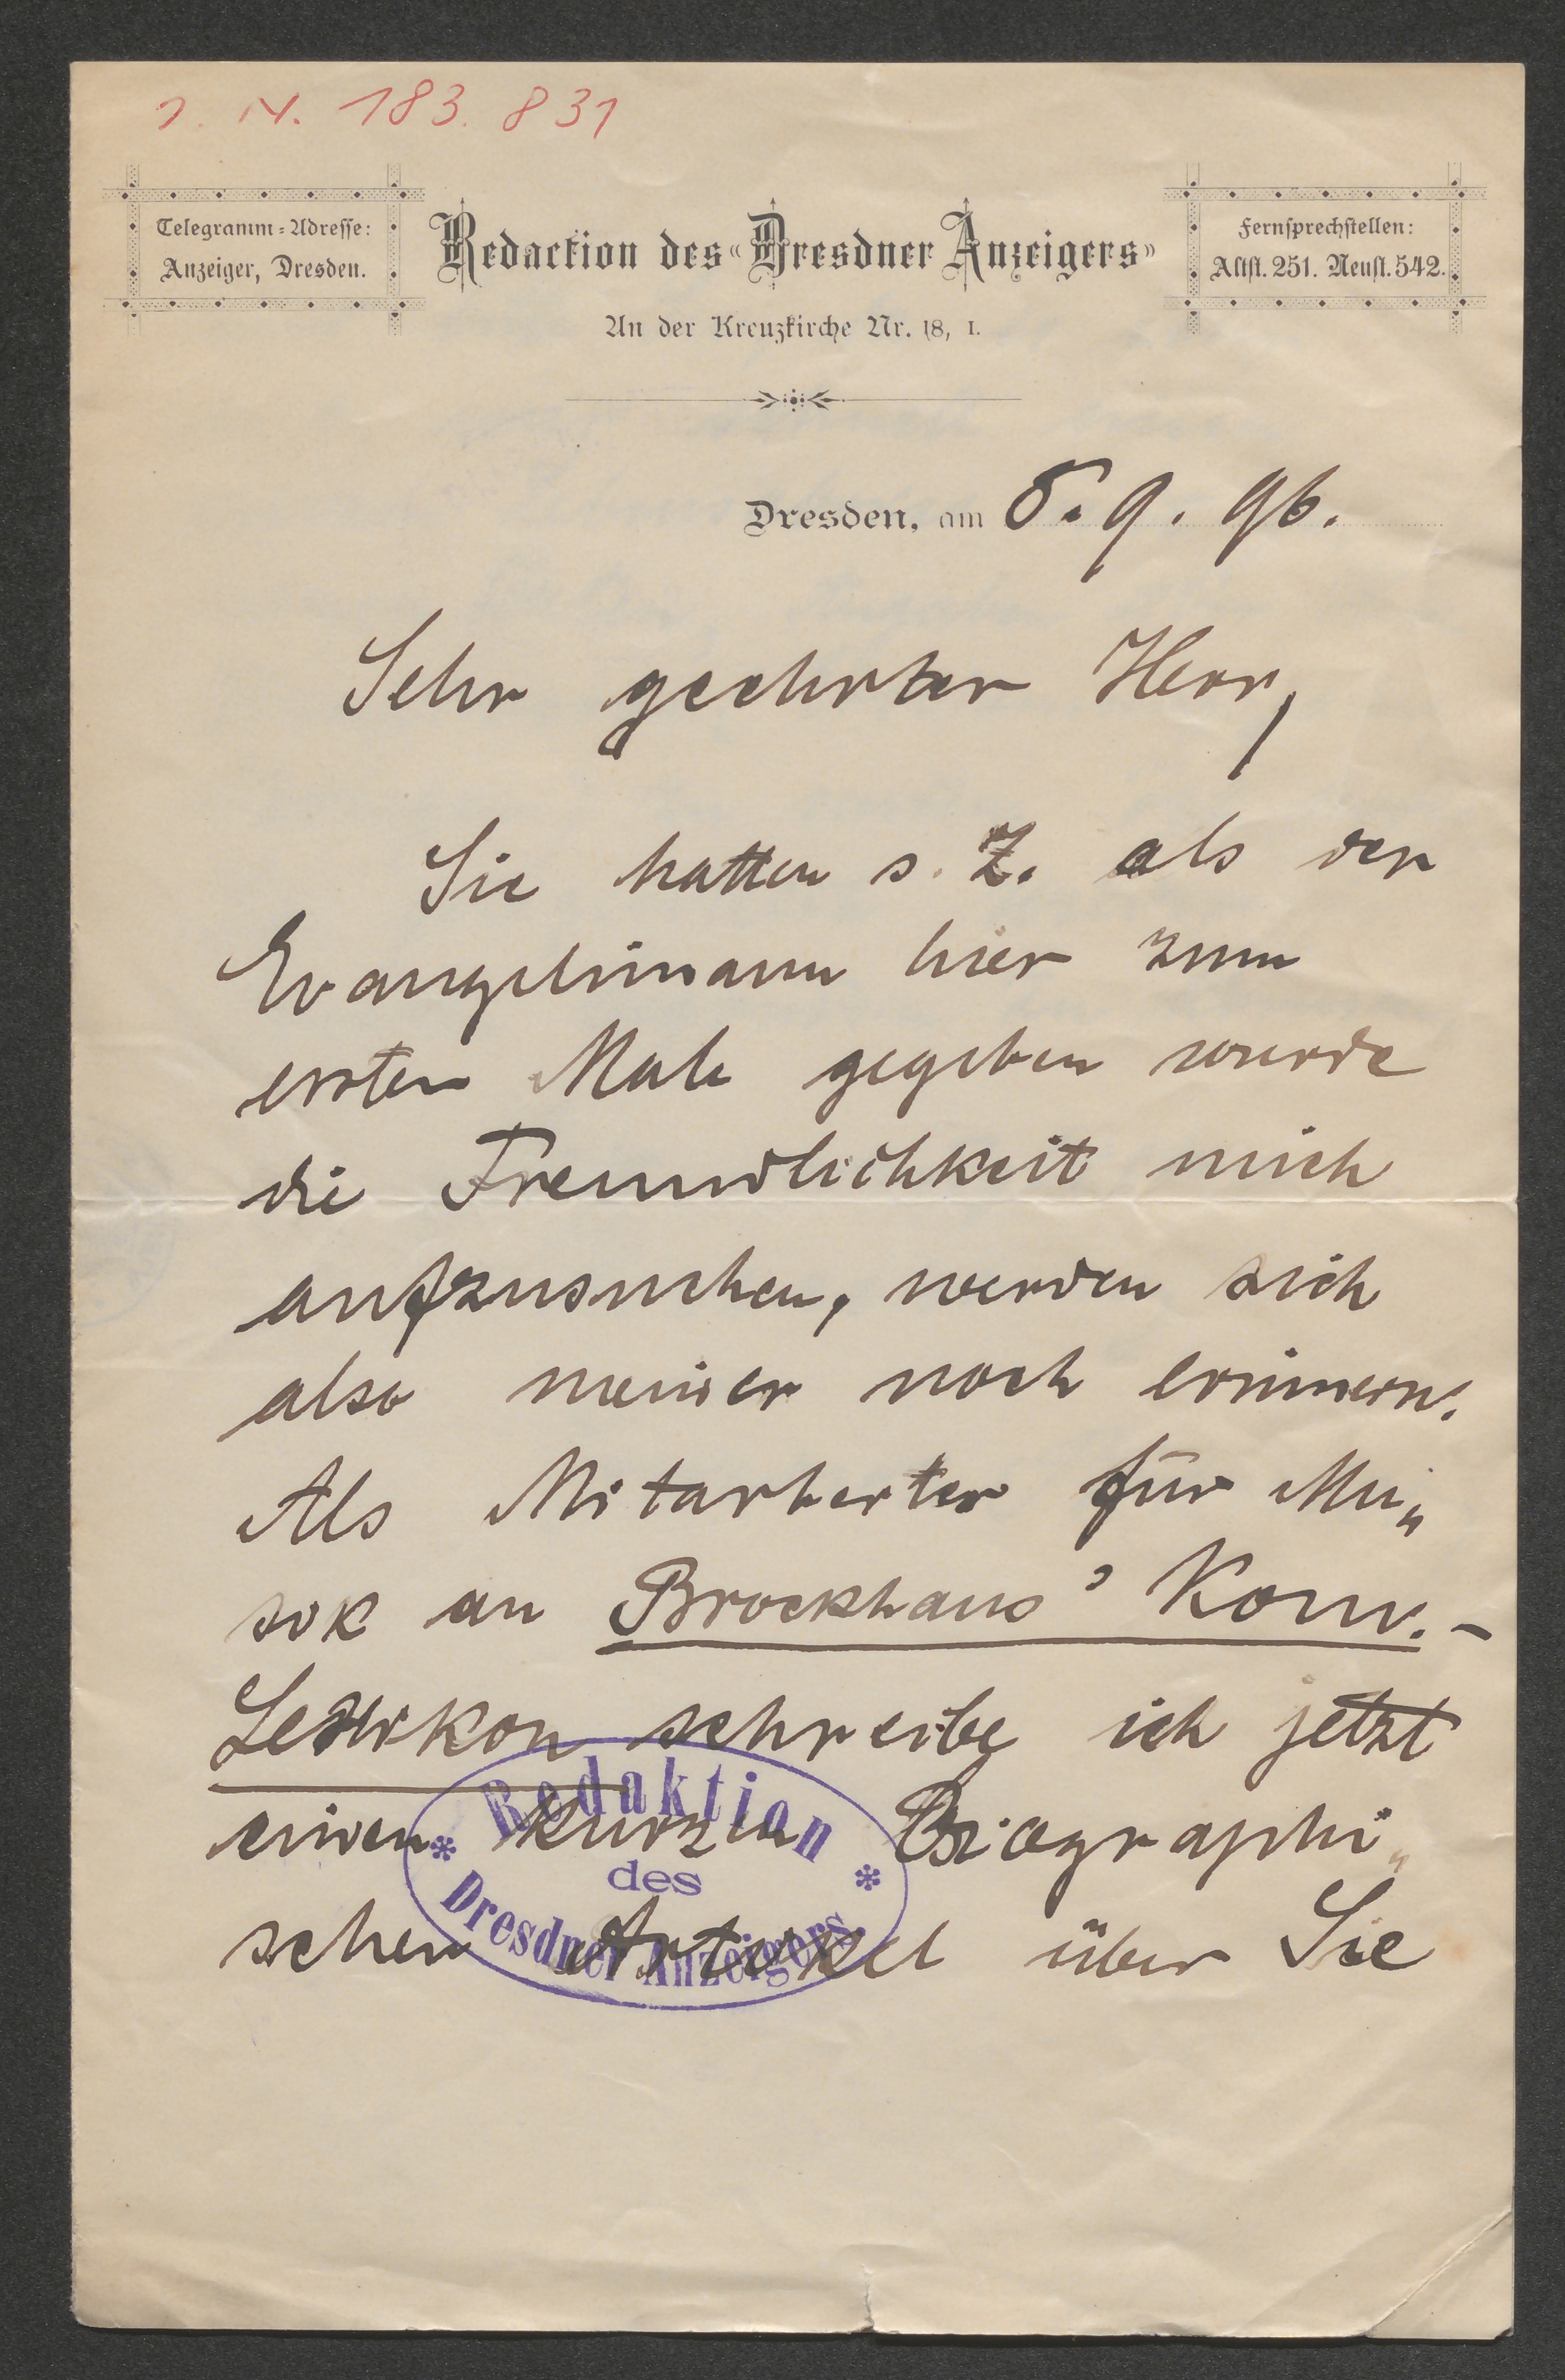 I. N. 183.831
Telegramm-Adresse:
Anzeiger, Dresden.
Redaction des «Dresdner Anzeigers»
An der Kreuzkirche Nr. 18, I.
Fernsprechstellen:
Altst. 251. Neust. 542.
Dresden, am 5. 9. 96.
Sehr geehrter Herr,
Sie hatten s. Z. als der
Evangelimann hier zum
ersten Male gegeben wurde
die Freundlichkeit mich
aufzusuchen, werden sich
also meiner noch erinnern.
Als Mitarbeiter für Mu„
sik an Brockhaus' Konv.-
Lexikon schreibe ich jetzt
einen kurzen Biographi„
schen Artikel über Sie
Redaktion
des
Dresdner Anzeigers.